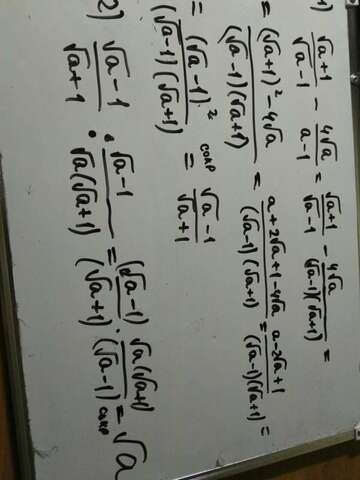 1) (√a+1)/(√a-1) - 4√a/(a-1) = (√a+1)/(√a-1) - 4√a/((√a-1)(√a+1)) =
= ((√a+1)² - 4√a)/((√a-1)(√a+1)) = (a+2√a+1-4√a)/((√a-1)(√a+1)) = (a-2√a+1)/((√a-1)(√a+1)) =
= (√a-1)²/((√a-1)(√a+1)) сокр = (√a-1)/(√a+1)
2) (√a-1)/(√a+1) : (√a-1)/(√a(√a+1)) = (√a-1)/(√a+1) · √a(√a+1)/(√a-1) сокр = √a